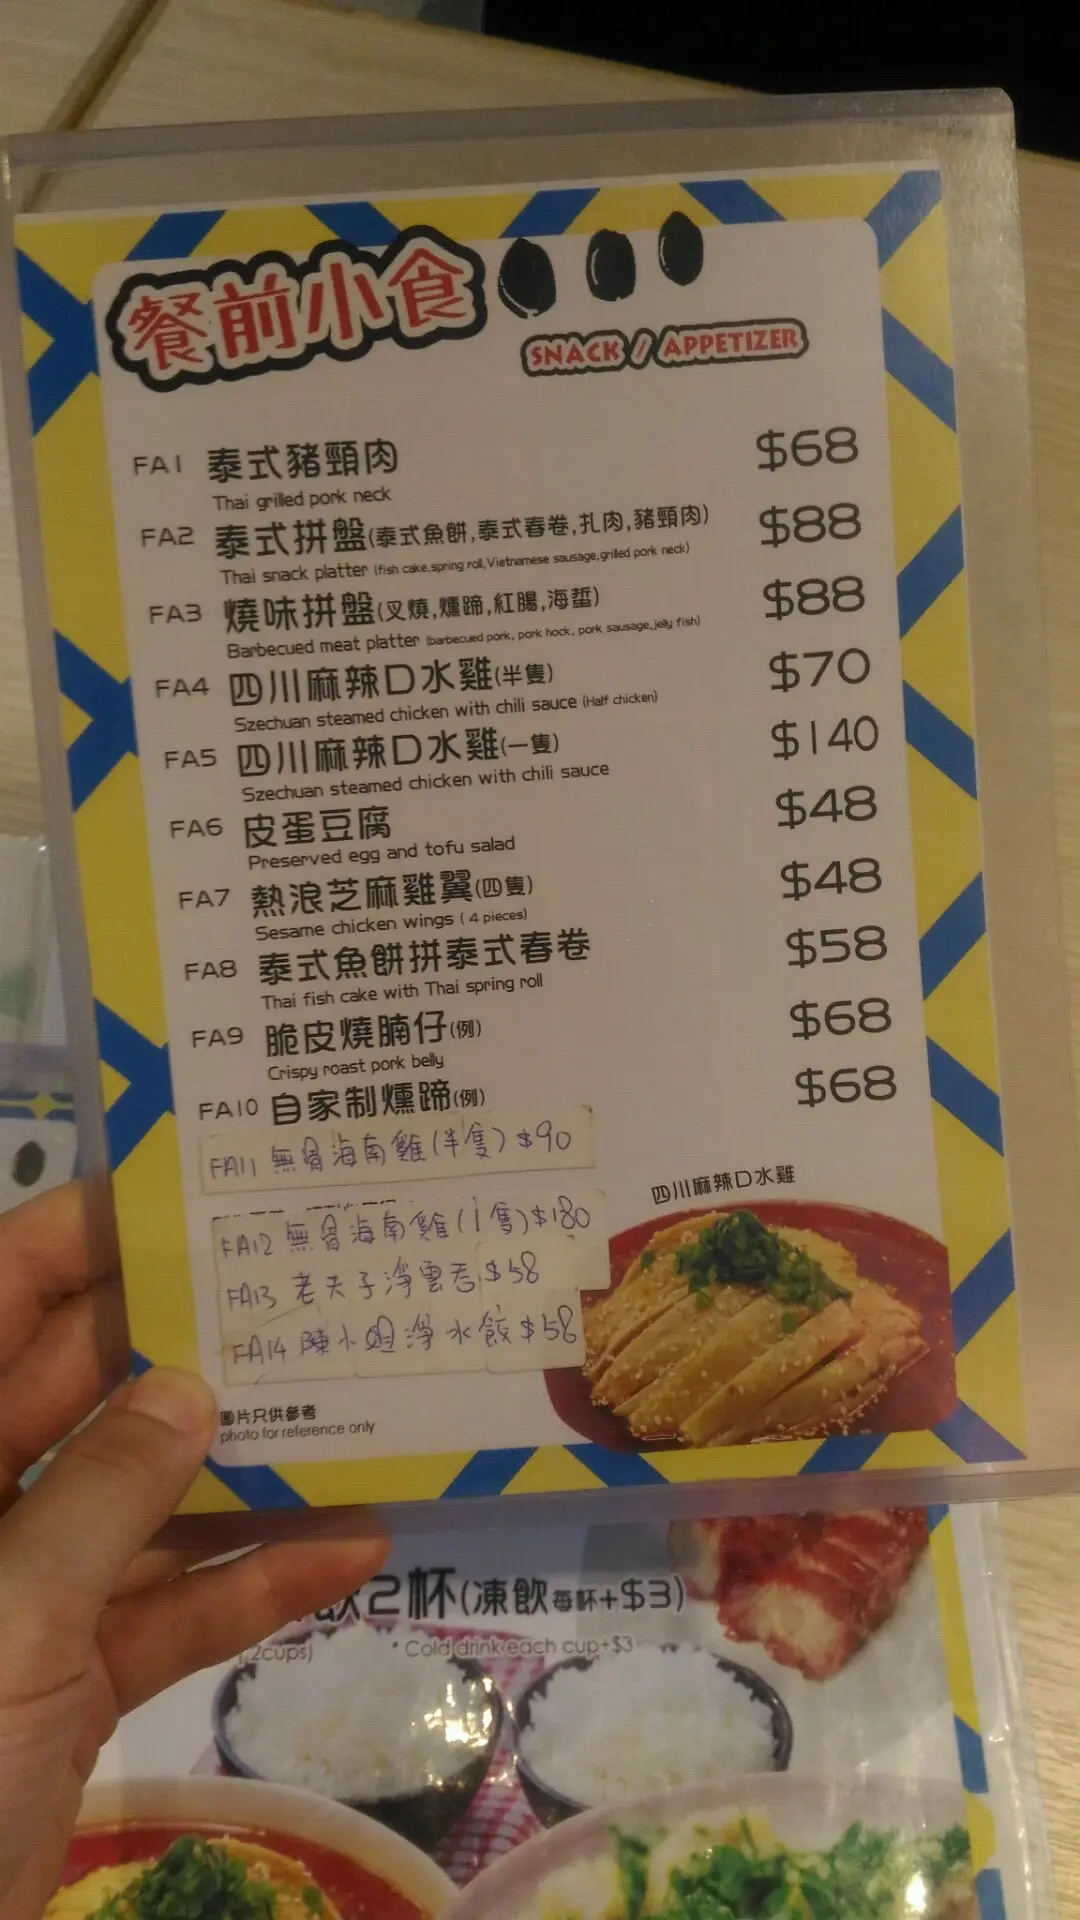 餐前小食
SNACK / APPETIZER
FA1 泰式豬頸肉 $68
Thai grilled pork neck
FA2 泰式拼盤(泰式魚餅,泰式春卷,扎肉,豬頸肉) $88
Thai snack platter (fish cake,spring roll,Vietnamese sausage,grilled pork neck)
FA3 燒味拼盤(叉燒,燻蹄,紅腸,海蜇) $88
Barbecued meat platter (barbecued pork, pork hock, pork sausage,jelly fish)
FA4 四川麻辣口水雞(半隻) $70
Szechuan steamed chicken with chili sauce (Half chicken)
FA5 四川麻辣口水雞(一隻) $140
Szechuan steamed chicken with chili sauce
FA6 皮蛋豆腐 $48
Preserved egg and tofu salad
FA7 熱浪芝麻雞翼(四隻) $48
Sesame chicken wings ( 4 pieces)
FA8 泰式魚餅拼泰式春卷 $58
Thai fish cake with Thai spring roll
FA9 脆皮燒腩仔(例) $68
Crispy roast pork belly
FA10 自家制燻蹄(例) $68
FA11 無骨海南雞(半隻) $90
FA12 無骨海南雞(1隻) $180
FA13 老夫子淨雲吞 $58
FA14 陳小姐淨水餃 $58
四川麻辣口水雞
圖片只供參考
photo for reference only
飲2杯(凍飲每杯+$3)
2cups) * Cold drink each cup+$3